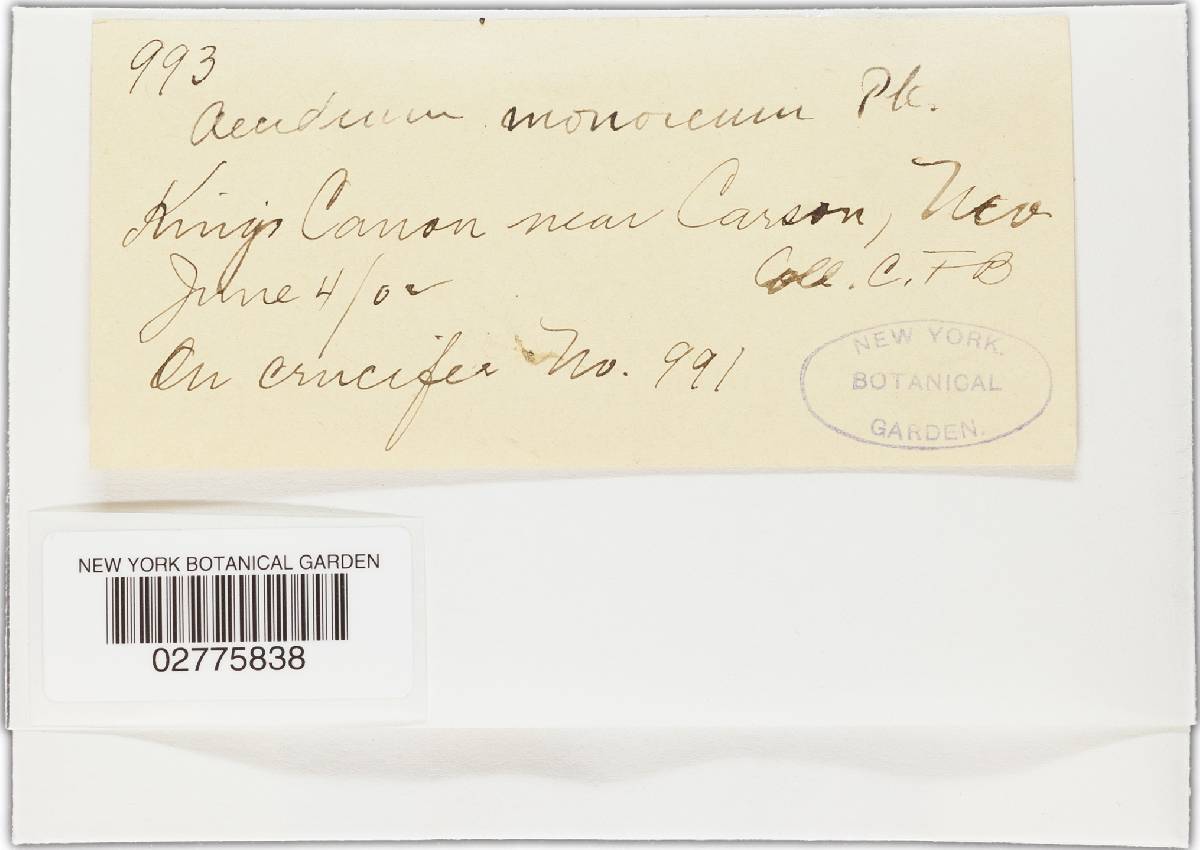 993
Aecidium monoicum Pk.
Kings Canon near Carson, Nev
June 4/02
Coll. C. F B
On crucifer No. 991
NEW YORK.
BOTANICAL
GARDEN.
NEW YORK BOTANICAL GARDEN
02775838